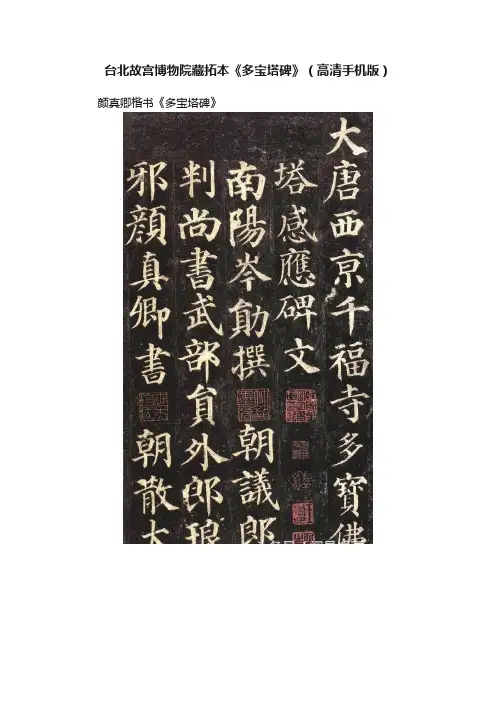 台北故宫博物院藏拓本《多宝塔碑》（高清手机版）
颜真卿楷书《多宝塔碑》
大唐西亰千福寺多寶佛
塔感應碑文
南陽岑勛撰 朝議郎
判尚書武部貟外郎琅
邪顏真卿書 朝散大